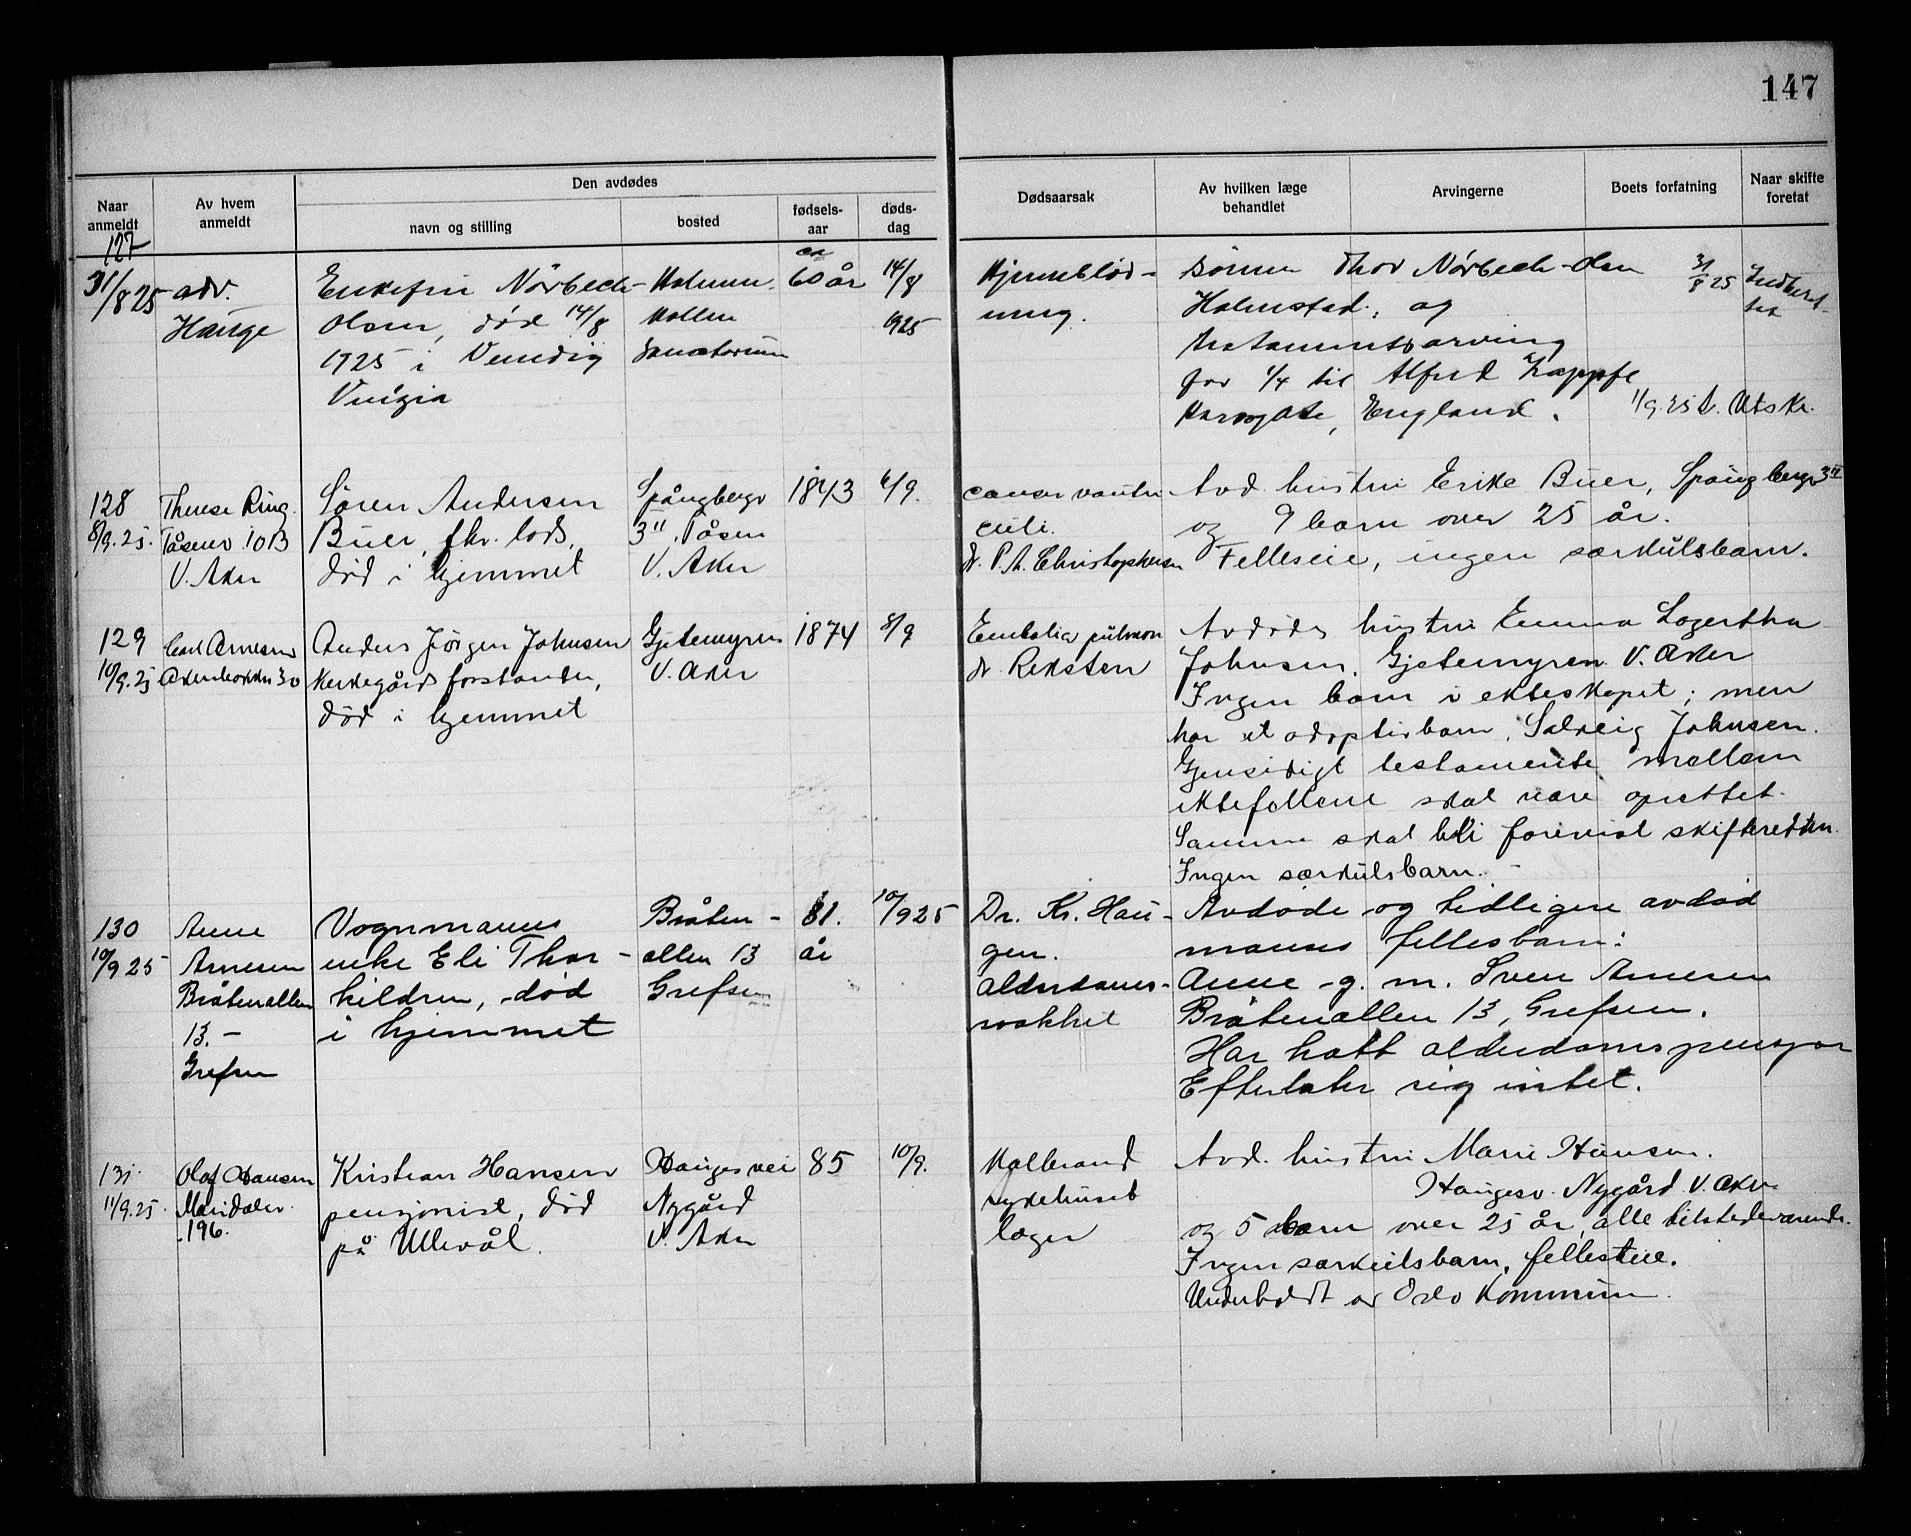 147
Naar anmeldt
Av hvem anmeldt
Den avdødes
navn og stilling
bosted
fødsels-aar
døds-dag
Dødsaarsak
Av hvilken læge behandlet
Arvingerne
Boets forfatning
Naar skifte foretat
127
31/8 25
adv.
Hauge
Enkefru Nörbech-
Olsen, död 14/8
1925 i Venedig
Holmen
Kollen
Sanatorium
ca
60 år
14/8
1925
Hjerneblöd-
ning.
Sönnen Thor Nörbech-Olsen
Halmstad, og
testamentsarving
for 1/4 til Alfred
Harrogate, England.
31/8 25
Indberet-
tet
11/9.25 Utskr.
128
8/9.25.
Therese Ring.
Tåsenv. 10B
V. Aker
Sören Andersen
Buer, fhr. lods,
död i hjemmet
Spångbergv
3II, Tåsen
V. Aker
1843
6/9.
cancer ventri-
culi.
dr. P. A. Christophersen
Avd. hustru Erike Buer, Spångbergv 3II
og 9 barn over 25 år.
Felleseie, ingen særkulsbarn.
129
10/9.25
Carl Arnesen
Akersbakken 30
Anders Jörgen Johnsen
Kirkegårdsforstander,
död i hjemmet
Gjetemyren
V. Aker
1874
8/9
Embolia pulmon
dr. Reksten
Avdödes hustru Emma Lagertha
Johnsen, Gjetemyren V. Aker
Ingen barn i ekteskapet; men
har et adoptivbarn, Solveig Johnsen.
Gjensidigt testamente mellem
ektefellene skal være oprettet.
Samme skal bli forevist skifteretten.
Ingen særkulsbarn.
130
10/9 25
Anne
Arnesen
Bråtenalleen
13. -
Grefsen
Vognmanns
enke Eli Thor-
kildsen, död
i hjemmet
Bråten-
alleen 13
Grefsen
81.
år
10/9 25
Dr. Kr. Hau-
gen.
alderdoms-
svakhet
Avdöde og tidligere avdöd
manns fellesbarn:
Anne - g. m. Sven Arnesen
Bråtenalleen 13, Grefsen.
Har hatt alderdomspensjon
Efterlater sig intet.
131
11/9.25.
Olaf Hansen
Maridalsv.
196.
Kristian Hansen
pensjonist, död
på Ullevål.
Haugesvei
Nygård
V. Aker
85
10/9.
Kolbrand
sykehusets
læger
Avd. hustru Marie Hansen.
Haugesv. Nygård V. Aker
og 5 barn over 25 år, alle tilstedeværende.
Ingen særkulsbarn, felleseie.
Underholdt av Oslo Kommune.